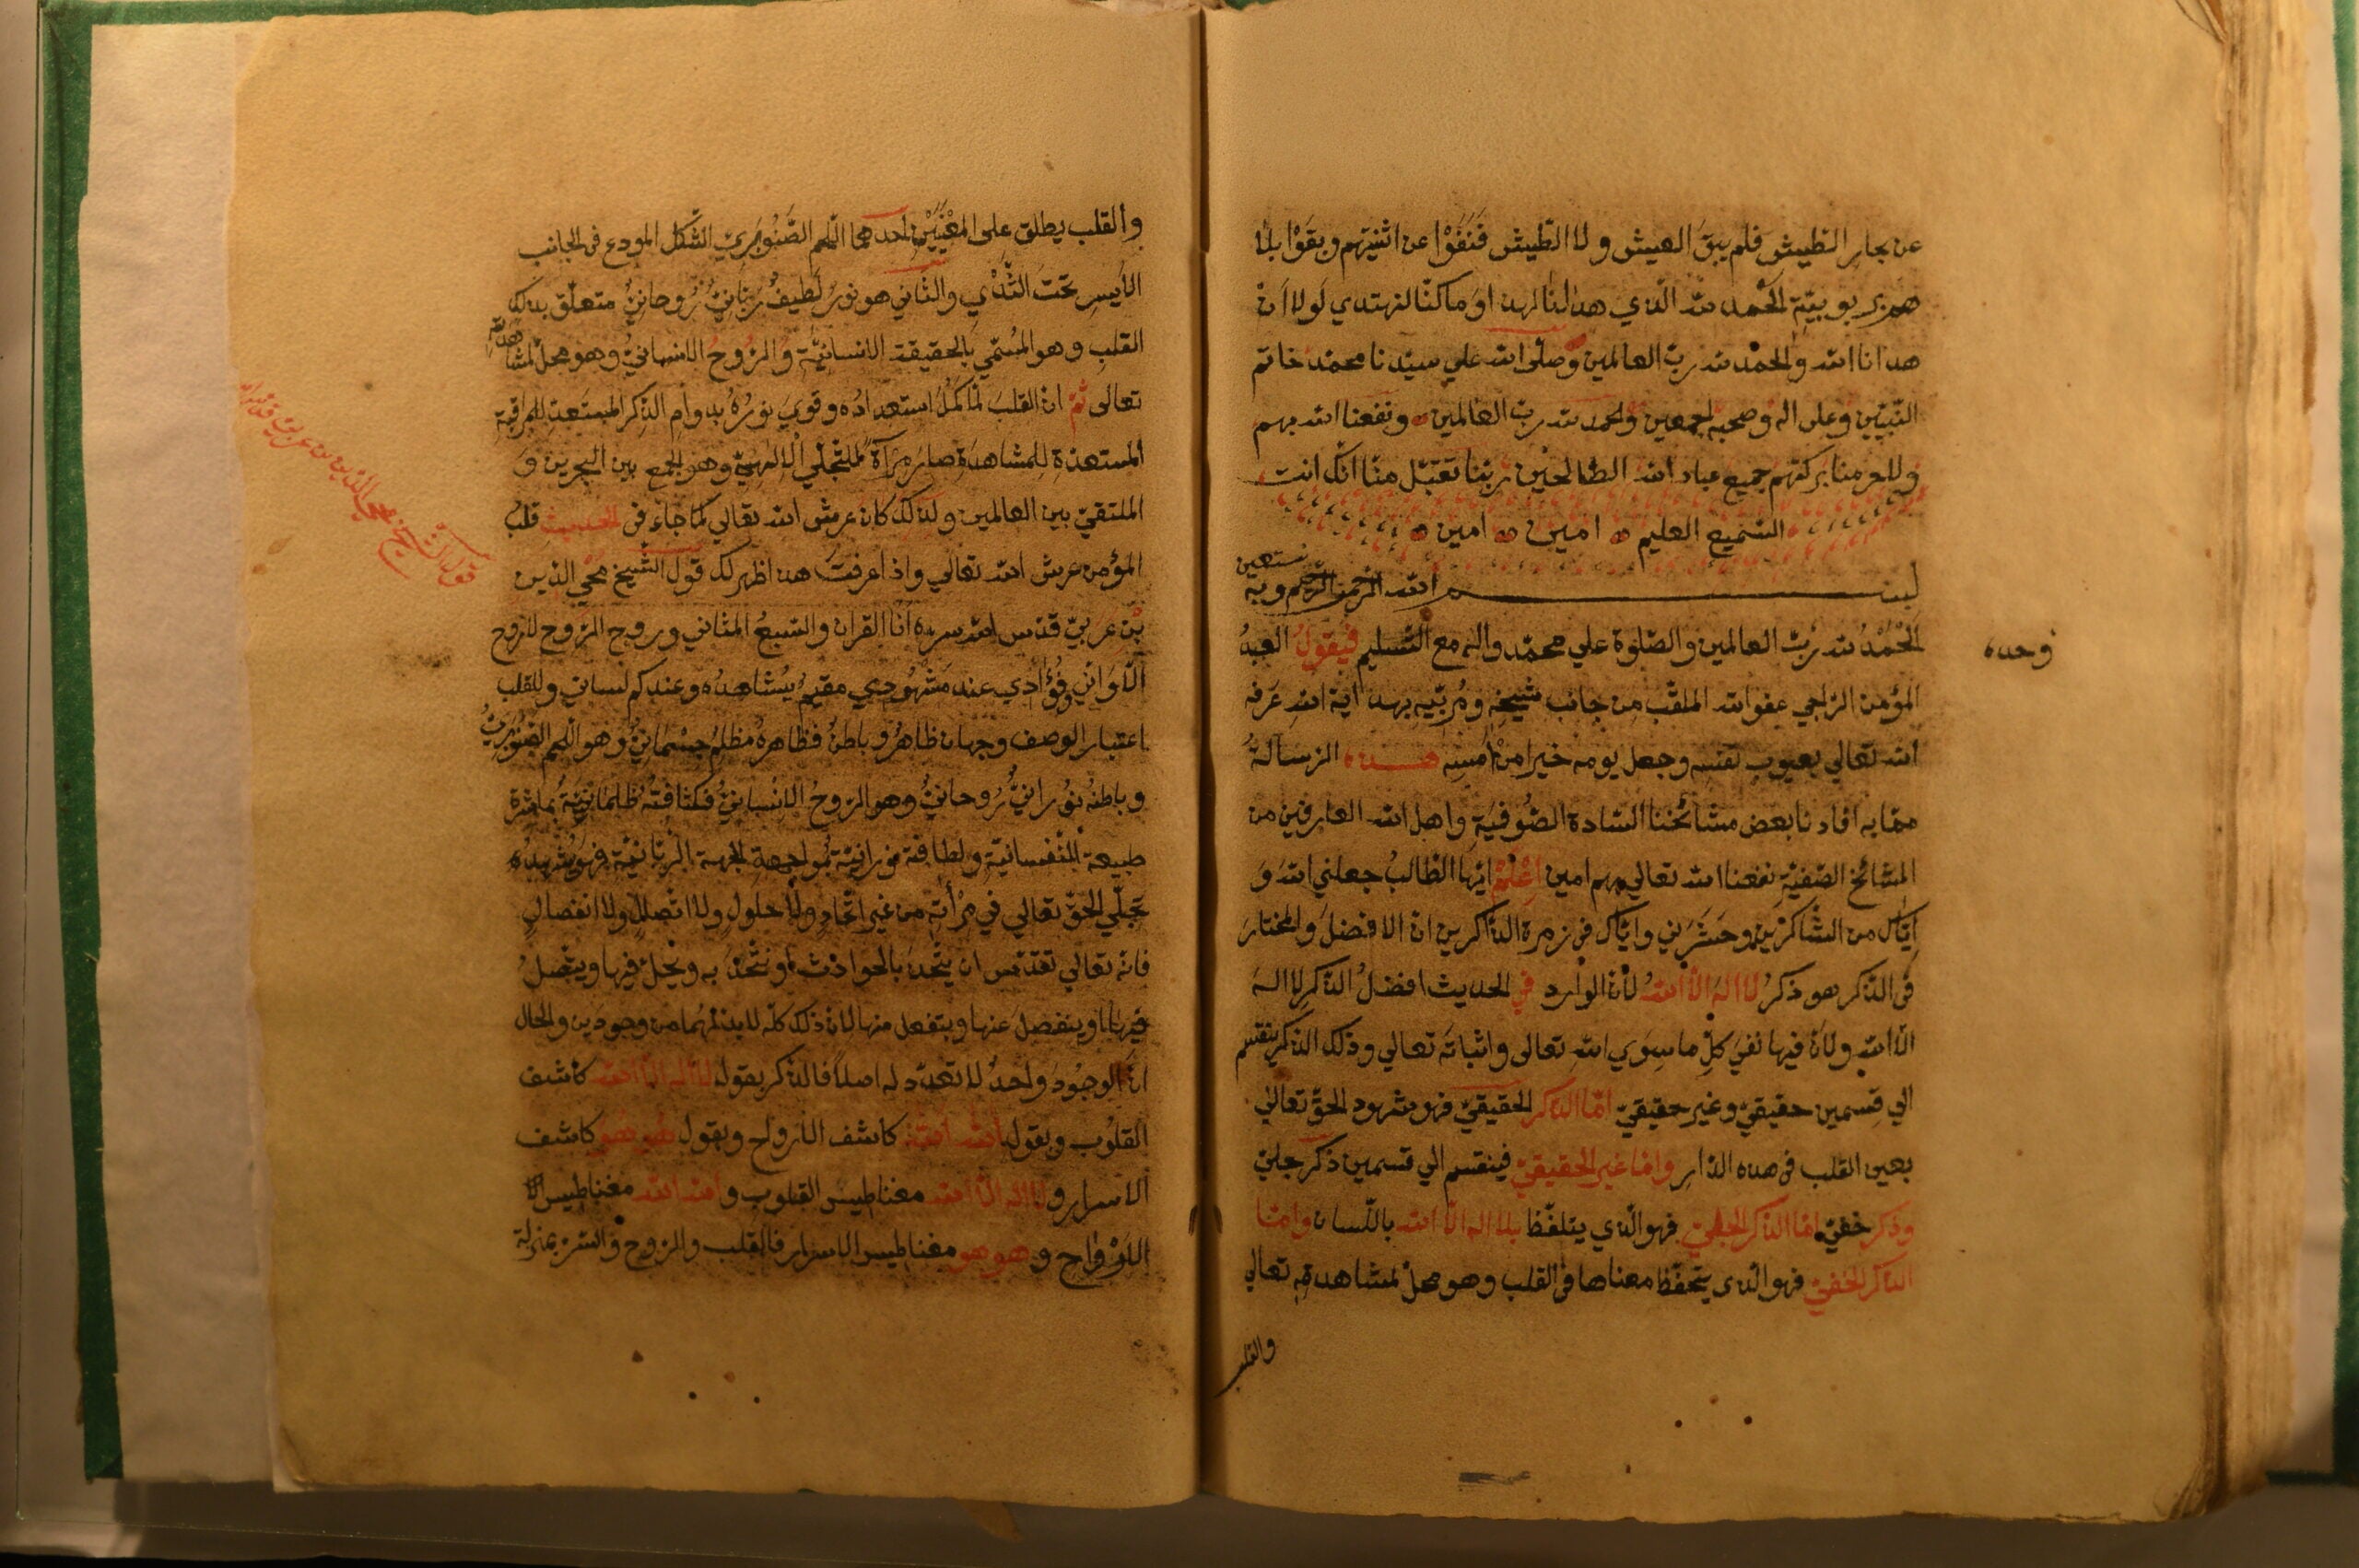 عن بحار الطيش فلم يبق العيش ولا الطيش ففنوا عن اثنيتهم وبقوا بلا
هم بربوبيّة الحمد لله الّذي هدانا لهذا وما كنّا لنهتدي لولا ان
هدانا الله والحمد لله ربّ العالمين وصلّى الله علي سيّدنا محمّد خاتم
النّبيّين وعلى اله وصحبه اجمعين والحمد لله ربّ العالمين ونفعنا الله بهم
بركتهم جميع عباد الله الصّالحين ربّنا تقبّل منّا انّك انت
السّميع العليم امين امين
بسم الله الرّحمن الرّحيم وبه نستعين
الحمد لله ربّ العالمين والصّلوة علي محمّد واله مع التّسليم فيقول العبد
وحده
المؤمن الرّاجي عفو الله الملقّب من جانب شيخه ومربّيه بهداية الله عرّفه
الله تعالي بعيوب نفسه وجعل يومه خيرا من امسه هذه الرّسالة
ممّا به افادنا بعض مشائخنا السّادة الصّوفيّة واهل الله العارفين من
المشائخ الصّفيّة نفعنا الله تعالي بهم امين اعلم ايّها الطّالب جعلني الله و
ايّاك من الشّاكرين وحشرني وايّاك في زمرة الذّاكرين انّ الافضل والمختار
في الذّكر هو ذكر لا اله الّا الله لانّ الوارد في الحديث افضل الذّكر لا اله
الّا الله ولانّ فيها نفي كلّ ما سوي الله تعالى واثباته تعالي وذلك الذّكر ينقسم
الي قسمين حقيقيّ وغير حقيقيّ امّا الذّكر الحقيقيّ فهو شهود الحقّ تعالي
بعين القلب في هذه الدّار وامّا غير الحقيقيّ فينقسم الي قسمين ذكر جليّ
وذكر خفيّ امّا الذّكر الجليّ فهو الّذي يتلفّظ بلا اله الّا الله باللّسان وامّا
الذّكر الخفيّ فهو الّذي يتحفّظ معناها في القلب وهو محلّ لمشاهدته تعالي
والقلب
والقلب يطلق على المعنيين احدهما اللّحم الصّنوبريّ الشّكل المودع في الجانب
الأيسر تحت الثّدي والثّاني هو نور لطيف ربّانيّ روحانيّ متعلّق بذلك
القلب وهو المسمّي بالحقيقة الانسانيّة والرّوح الانسانيّ وهو محلّ لمشاهدته
تعالى ثمّ انّ القلب لمّا كمل استعداده وقوي نوره بدوام الذّكر المستعدّ للمراقبة
المستعدّة للمشاهدة صار مرآة للتّجلّي الالهيّ وهو الجمع بين البحرين و
الملتقي بين العالمين ولذلك كان عرش الله تعالي كما جاء في الحديث قلب
المؤمن عرش الله تعالي واذا عرفت هذا ظهر لك قول الشّيخ محّي الدّين
بن عربيّ قدّس الله سرّه انا القران والسّبع المثاني وروح الرّوح لا روح
الاواني وفؤادي عند مشهودي مقيم يشاهده وعندكم لساني وللقلب
قول الشّيخ محيّ الدّين بن عربيّ
اعتبار الوصف وجهان ظاهر وباطن فظاهره مظلم جسمانيّ وهو اللّحم الصّنوبريّ
وباطنه نورانيّ روحانيّ وهو الرّوح الانسانيّ فكثافته ظلمانيّة بمباشرة
طبيعة النّفسانيّة ولطافته نورانيّة بمواجهة الجهة الرّبّانيّة فهو يشهده
تجلّي الحقّ تعالي في مرأته من غير اتّحاد ولا حلول ولا اتّصال ولا انفصال
فانّه تعالي تقدّس ان يتّحد بالحوادث او تتّحد به ويحلّ فيها ويتّصل
فيها او ينفصل عنها وينفعل منها لانّ ذلك كلّه لا بدّ لهما من وجودين والحال
انّ الوجود واحد لا تعدّد له اصلا فالذّكر بقول لا اله الّا الله كاشف
القلوب وبقول الله الله كاشف الارواح وبقول هو هو كاشف
الاسرار ولا اله الّا الله مغناطيس القلوب والله الله مغناطيس
الارواح وهو هو مغناطيس الاسرار فالقلب والرّوح والسّرّ بمنزلة